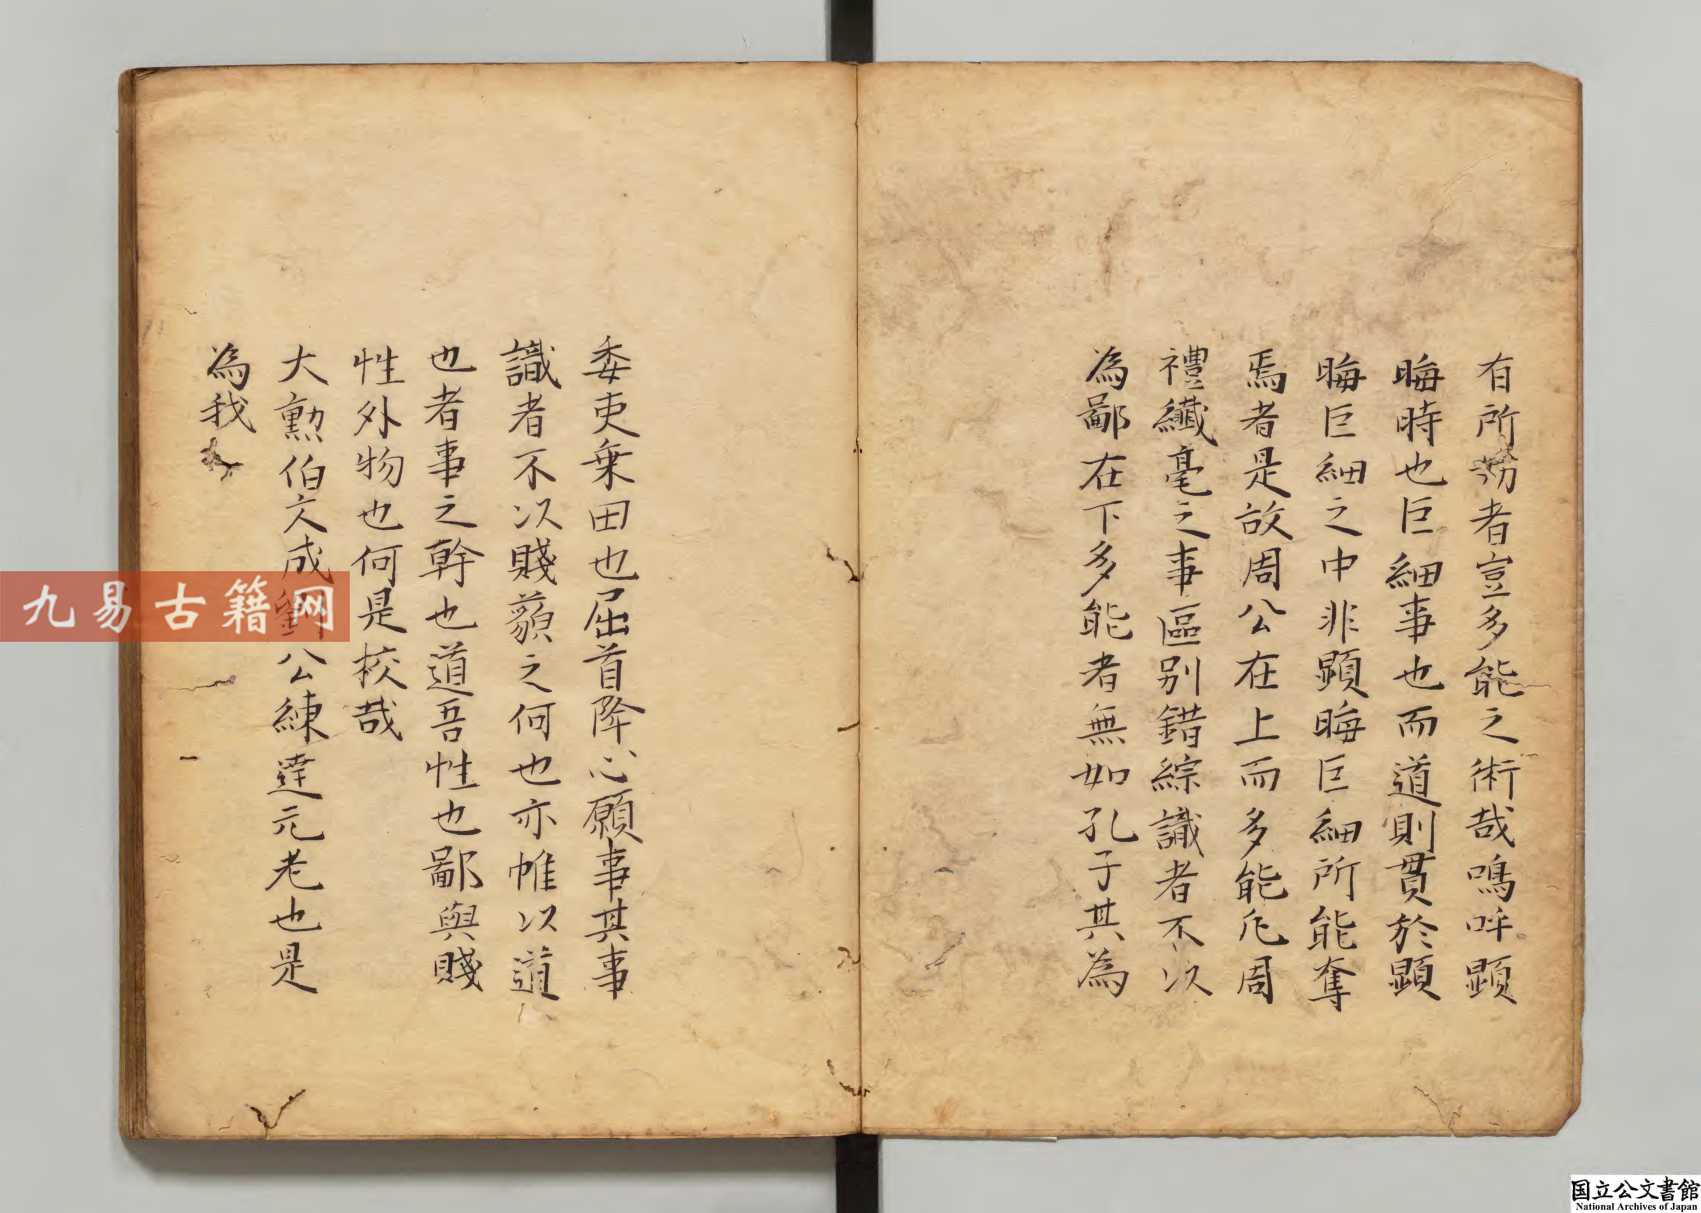 有所務者豈多能之術哉鳴呼顕
晦時也巨細事也而道則貫於顕
晦巨細之中非顕晦巨細所能奪
焉者是故周公在上而多能凡周
禮纖毫之事區别錯綜識者不以
為鄙在下多能者無如孔子其為
委吏乗田也屈首降心願事其事
識者不以賤藐之何也亦惟以道
也者事之幹也道吾性也鄙與賤
性外物也何是校哉
大勲伯文成劉公練達元老也是
為我
九易古籍网
国立公文書館
National Archives of Japan